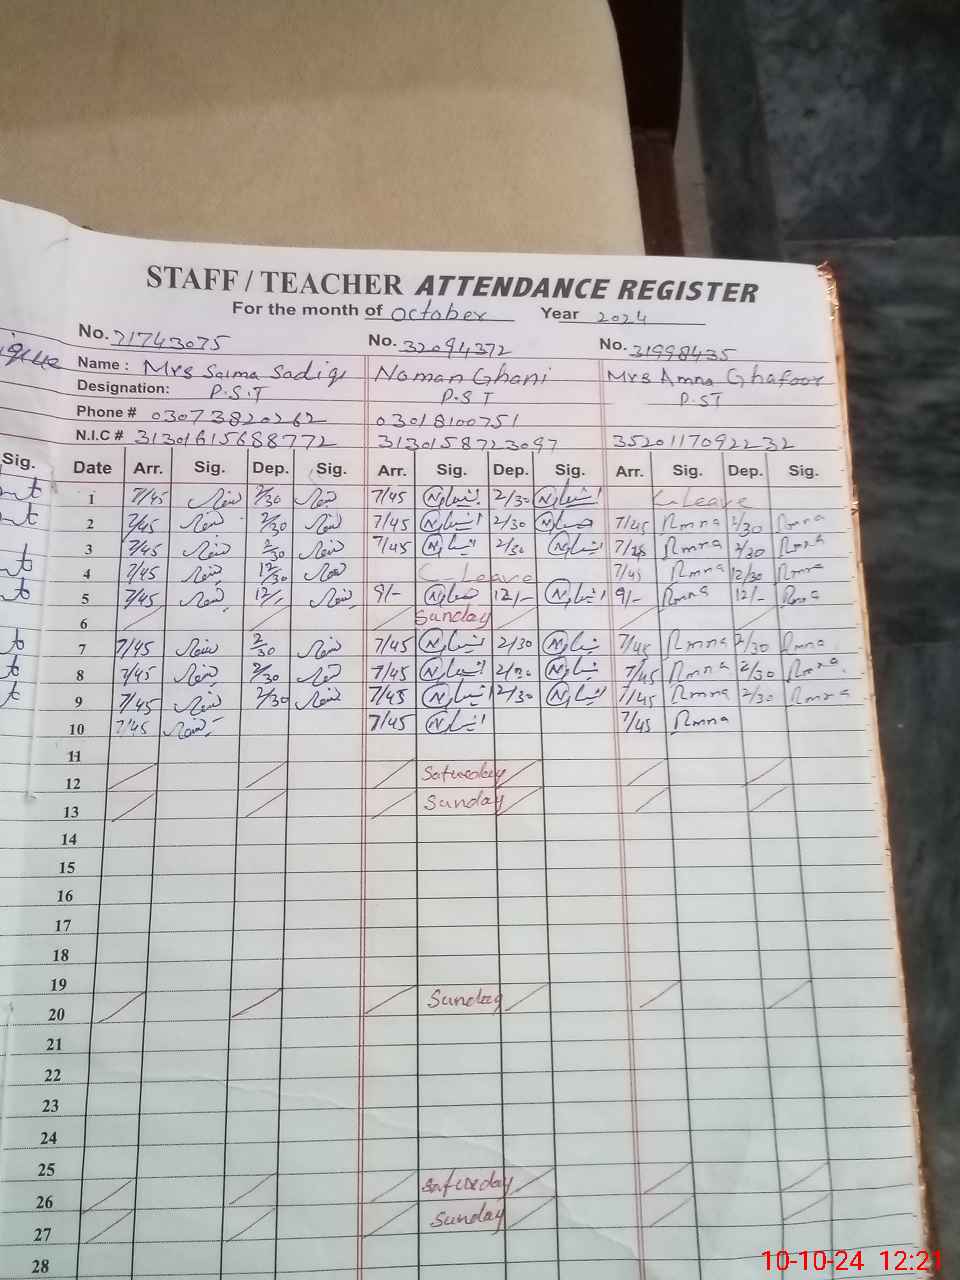 STAFF / TEACHER ATTENDANCE REGISTER
For the month of October Year 2024
No. 31743075 No. 32094372 No. 31998435
Name : Mrs Saima Sadiq Noman Ghani Mrs Amna Ghafoor
Designation: P.S.T P.S.T P.ST
Phone # 03073820262 03018100751
N.I.C # 31301615688772 3130158723097 3520117092232
Sig. Date Arr. Sig. Dep. Sig. Arr. Sig. Dep. Sig. Arr. Sig. Dep. Sig.
1 7/45 2/30 7/45 2/30 C-Leave
2 7/45 2/30 7/45 2/30 7/45 Amna 2/30 Amna
3 7/45 2/30 7/45 2/30 7/45 Amna 2/30 Amna
4 7/45 12/30 C-Leave 7/45 Amna 12/30 Amna
5 7/45 12/- 9/- 12/- 9/- Amna 12/- Amna
6 Sunday
7 7/45 2/30 7/45 2/30 7/45 Amna 2/30 Amna
8 7/45 2/30 7/45 2/30 7/45 Amna 2/30 Amna
9 7/45 2/30 7/45 2/30 7/45 Amna 2/30 Amna
10 7/45 7/45 7/45 Amna
11
12 Saturday
13 Sunday
14
15
16
17
18
19
20 Sunday
21
22
23
24
25
26 Saturday
27 Sunday
28
10-10-24 12:21